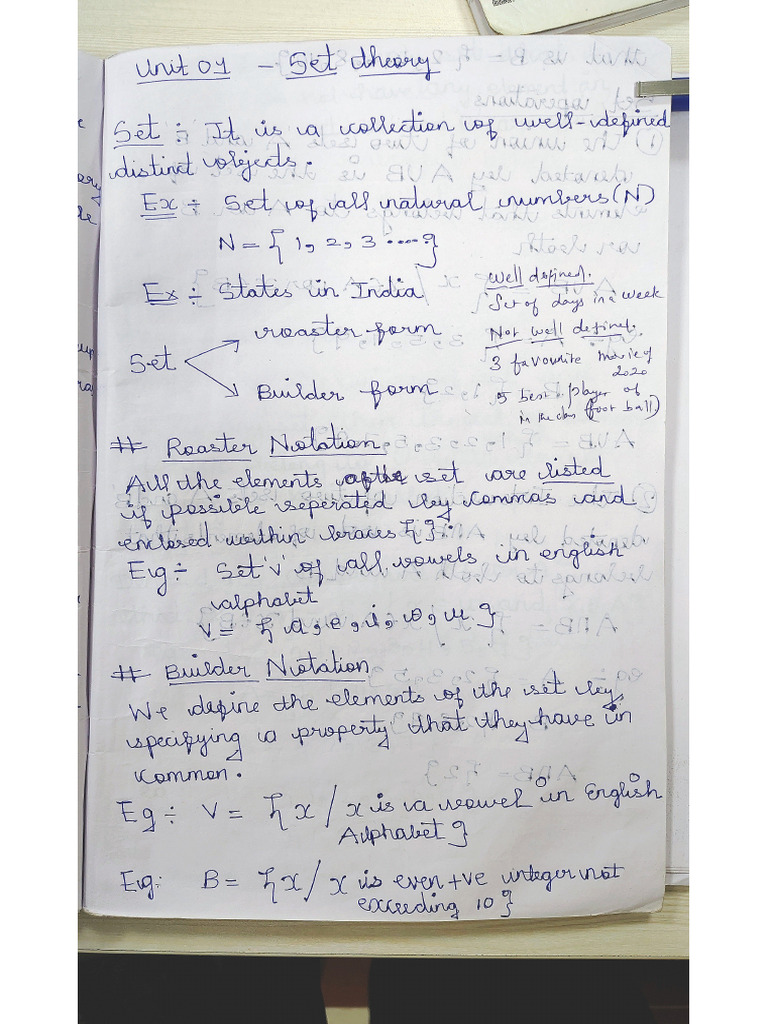 Unit 01 - Set theory
Set ÷ It is a collection of well-defined
distinct objects.
Ex ÷ Set of all natural numbers (N)
N = { 1, 2, 3 ....}
Ex ÷ States in India
Well defined.
Set of days in a week
Not well defined.
3 favourite movie of
2020
5 best player of
in the class (foot ball)
Set
roaster form
Builder form
# Roaster Notation
All the elements of the set are listed
if possible seperated by commas and
enclosed within braces { } :
Eg ÷ Set 'V' of all vowels in english
alphabet
V = { a, e, i, o, u }
# Builder Notation
We define the elements of the set by
specifying a property that they have in
common.
Eg ÷ V = { x / x is a vowel in English
Alphabet }
Eg: B = { x / x is even +ve integer not
exceeding 10 }